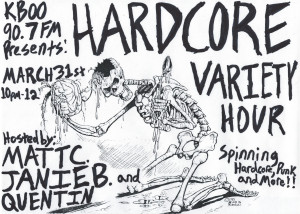 KBOO
90.7 FM
Presents!
HARDCORE
VARIETY
HOUR
MARCH 31st
10PM-12
Hosted by:
MATT C.
JANIE B. and
QUENTIN
Spinning
Hardcore, Punk
and More!!